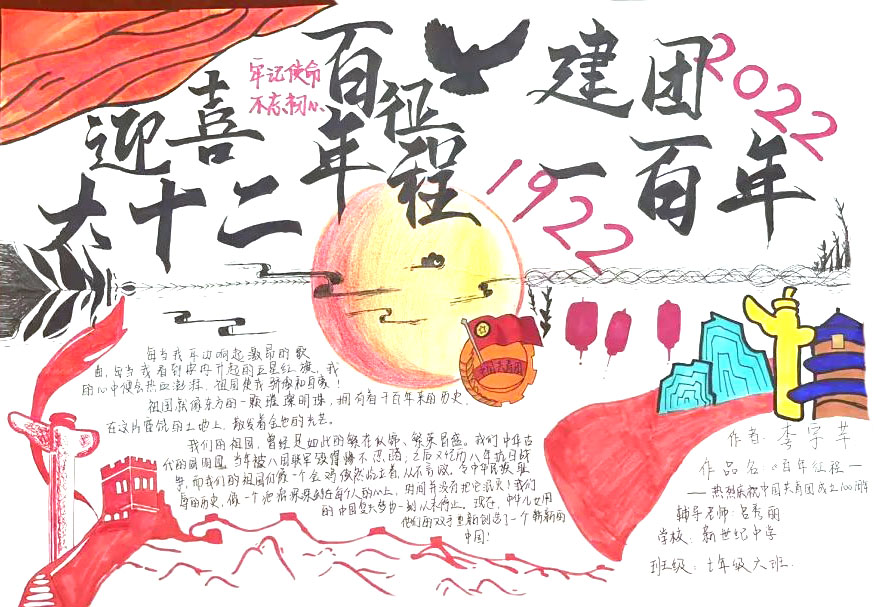 牢记使命
不忘初心
百年征程
建团
一百年
迎喜
六十二
2022
1922
每当我耳边响起激昂的歌
曲,每当我看到冉冉升起的五星红旗,我
的心中便会热血澎湃,祖国使我骄傲和自豪!
祖国就像东方的一颗璀璨明珠,拥有着千百年来的历史,
在这片
的土地上,散发着
的光芒。
我们的祖国,曾经是如此的
繁荣昌盛。我们中华古
代的圆明园,当年被八国联军毁得惨不忍睹,之后又经历八年抗日战
争,而我们的祖国仍像一个
依然屹立着,从不言败,
中华民族
的历史,像一个
在每个人的心上,时间并没有把它
!我们
的中国
梦也一刻从未停止,现在,中华儿女用
他们的双手重新创造了一个崭新的
中国!
作者:李字芊
作品名:《百年征程—
—热烈庆祝中国共青团成立100周年
辅导老师:吕秀丽
学校:新世纪中学
班级:七年级六班.